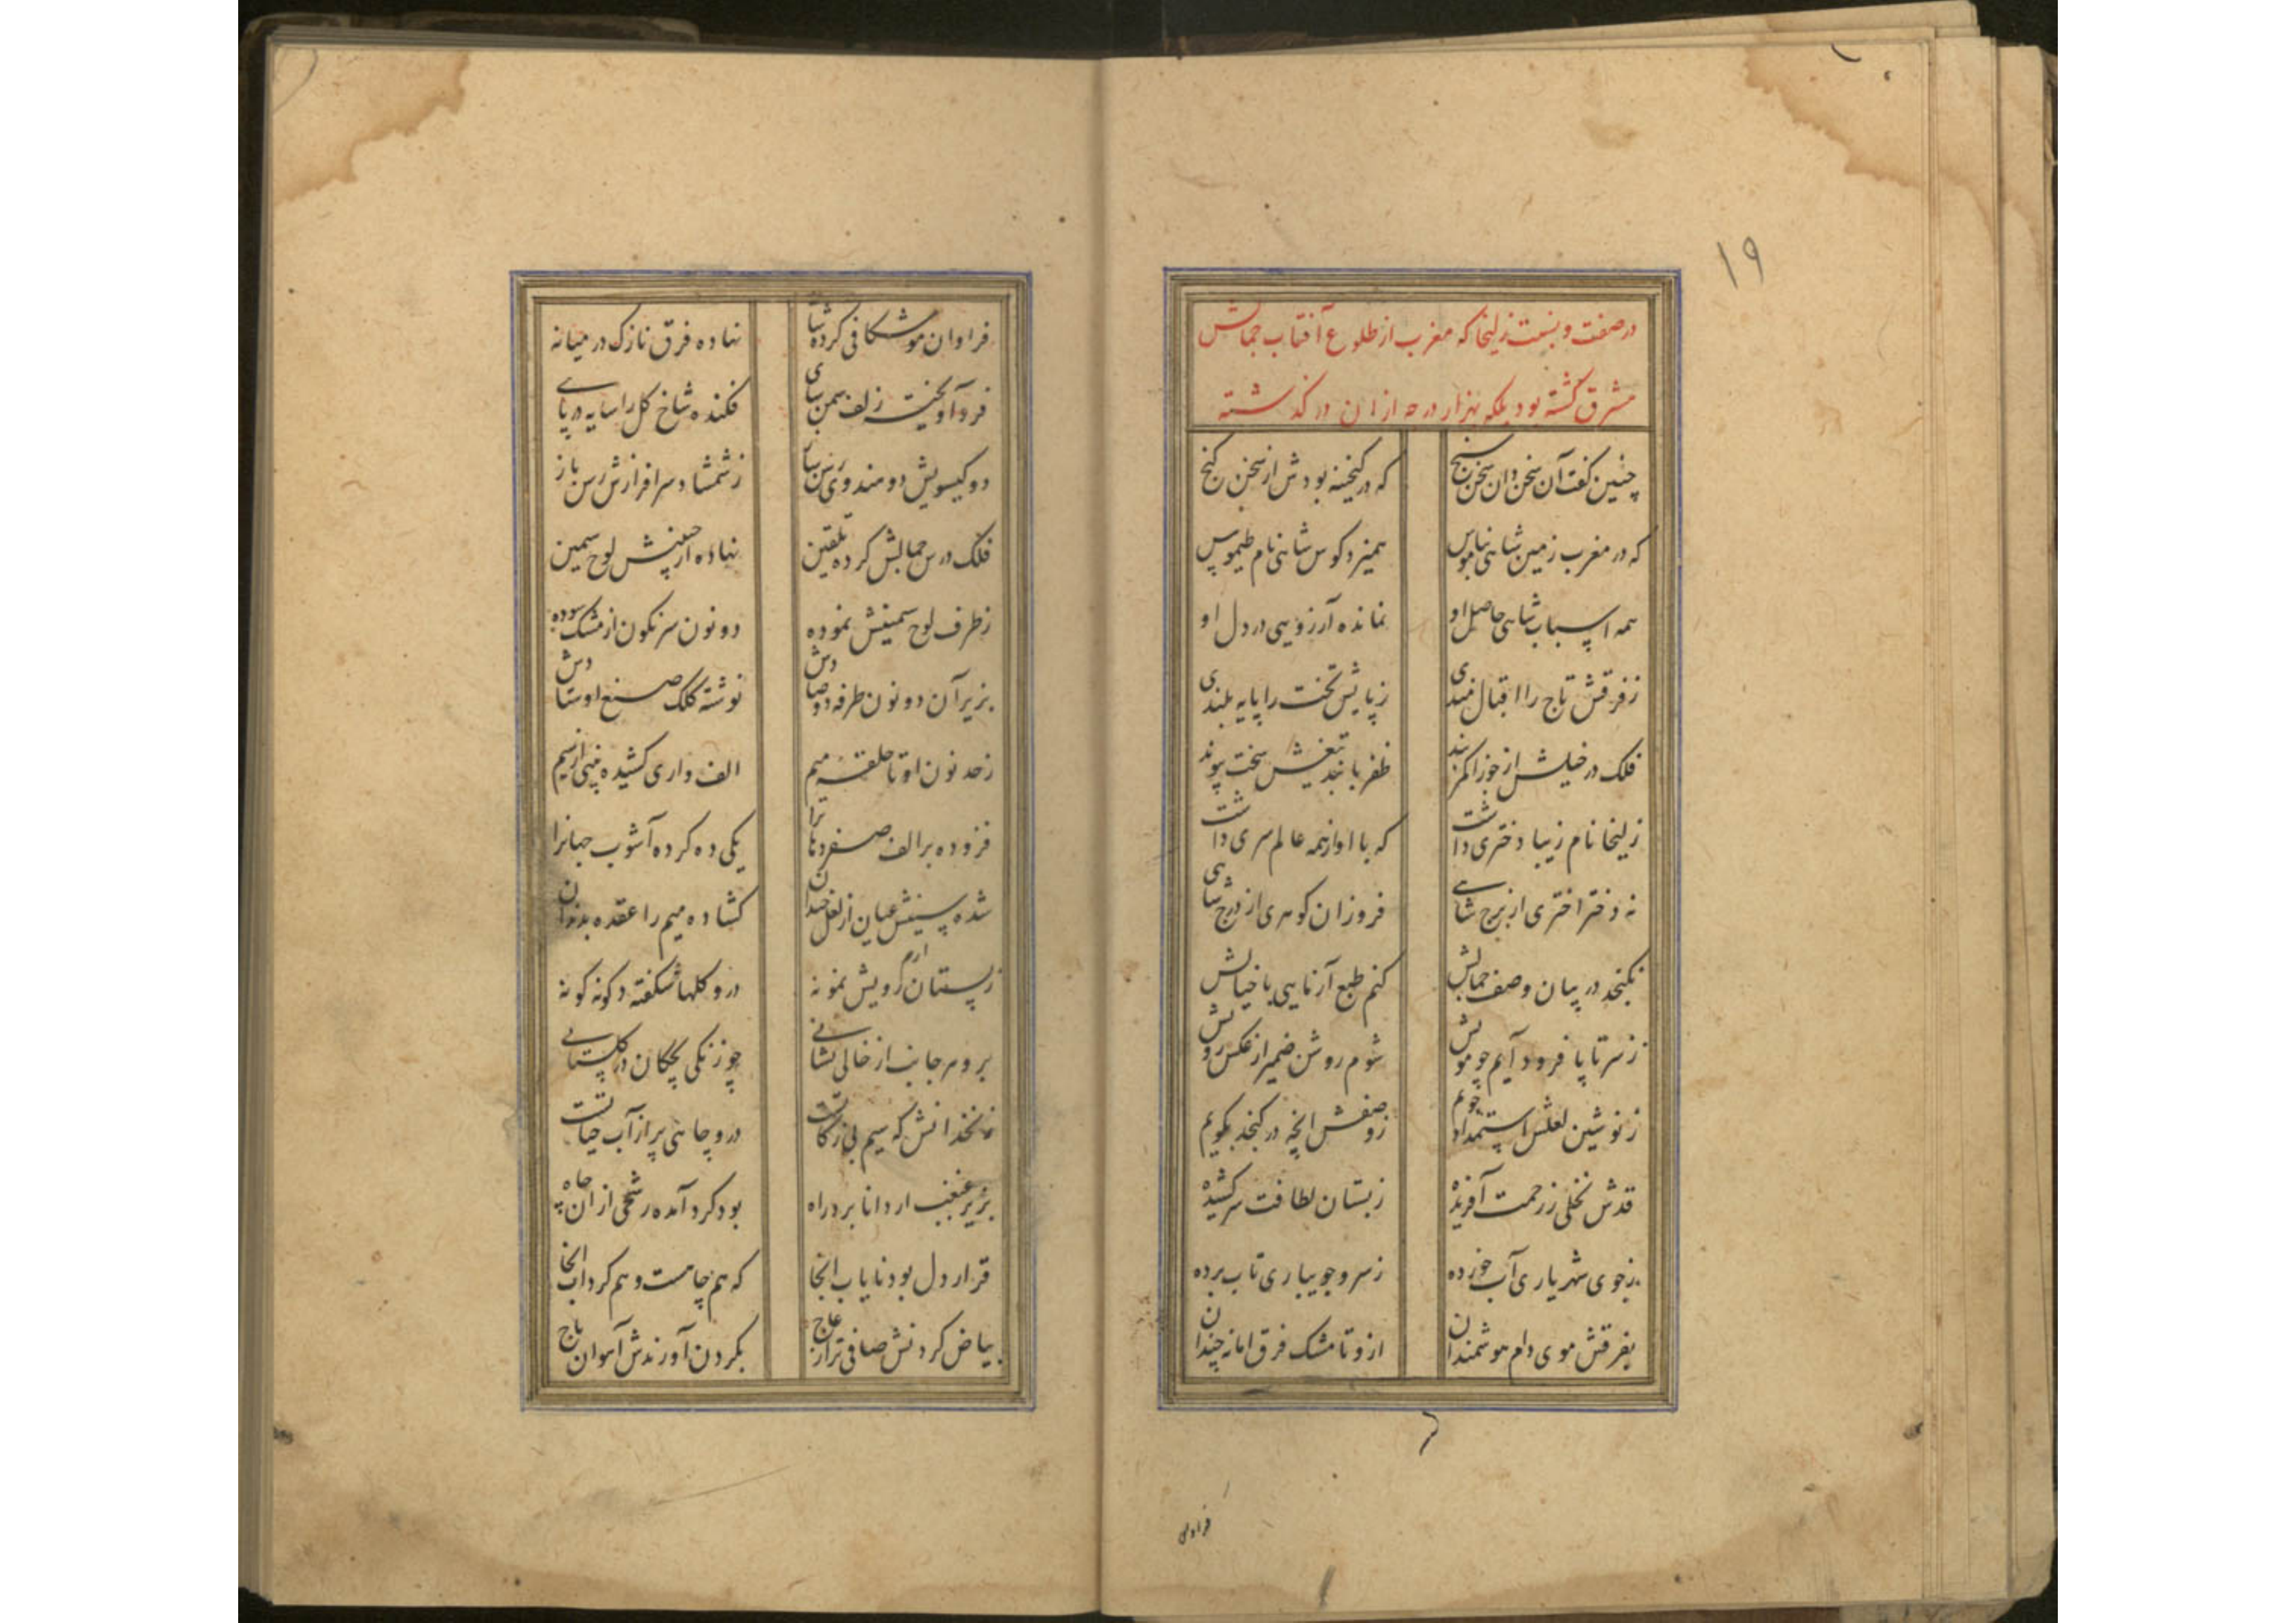 ۱۹
در صفت و نسبت زلیخا که مغرب از طلوع آفتاب جمالش
مشرق گشته بود بلکه بهزار درجه ازان در گذشته
چنین گفت آن سخن دان سخن سنج که در گنجینه بودش از سخن گنج
که در مغرب زمین شاهی بناموس همیزد کوس شاهی نام طیموس
همه اسباب شاهی حاصل او نمانده آرزویی در دل او
ز فرقش تاج را اقبال مندی ز پایش تخت را پایه بلندی
فلک در خیلش از جوزا کمر بند ظفر با بند تیغش سخت پیوند
زلیخا نام زیبا دختری داشت که با او از همه عالم سری داشت
نه دختر اختری از برج شاهی فروزان گوهری از درج شاهی
نگنجد در بیان وصف جمالش کنم طبع آزمایی با خیالش
ز سر تا پا فرود آیم چو مویش شوم روشن ضمیر از عکس رویش
ز نوشین لعلش استمداد جویم ز وصفش انچه در گنجد بگویم
قدش نخلی ز رحمت آفریده ز بستان لطافت سر کشیده
ز جوی شهریاری آب خورده ز سرو جویباری تاب برده
بفرقش موی دام هوشمندان ازو تا مشک فرق اما نه چندان
فراوان
فراوان موشکافی کرده شانه نهاده فرق نازک در میانه
فرو آویخت زلف سمن سای فکنده شاخ گل را سایه در پای
دو گیسویش دو هندوی رسن ساز ز شمشاد سرافرازش رسن باز
فلک درس جمالش کرده تلقین نهاده از جبینش لوح سیمین
ز طرف لوح سیمینش نموده دو نون سرنگون از مشک سوده
بزیر آن دو نون طرفه دو صادش نوشته کلک صنع اوستادش
ز حد نون او تا حلقه میم الف واری کشیده بینی از سیم
فزوده بر الف صفر دهانرا یکی ده کرده آشوب جهانرا
شده سینش عیان از لعل خندان گشاده میم را عقده بدندان
ز بستان ارم رویش نمونه درو گلها شگفته گونه گونه
برو هر جانب از خالی نشانی چو زنگی بچگان در گلستانی
زنخدانش که سیم بی زکاتست درو چاهی پر از آب حیاتست
بزیر غبغب ار دانا برد راه بود گرد آمده رشحی از آن چاه
قرار دل بود نایاب انجا که هم چاهست و هم گرداب انجا
بیاض گردنش صافی تر از عاج بگردن آورندش آهوان باج